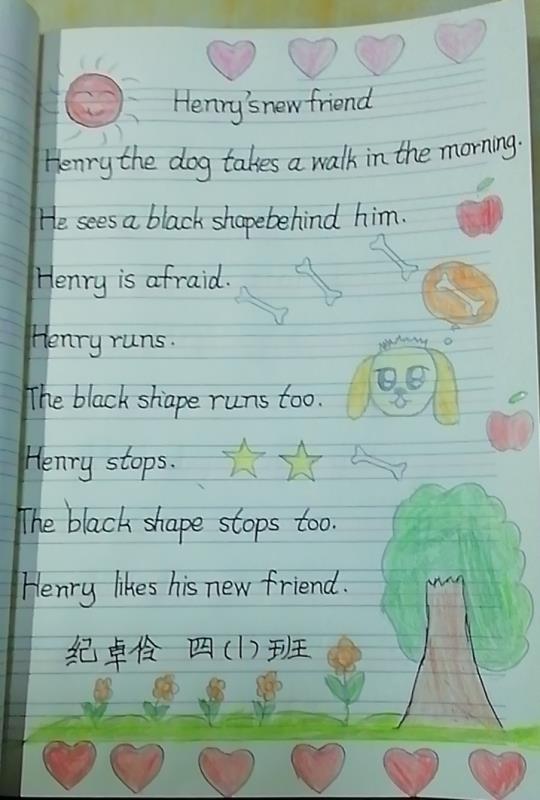 Henry's new friend
Henry the dog takes a walk in the morning.
He sees a black shape behind him.
Henry is afraid.
Henry runs.
The black shape runs too.
Henry stops.
The black shape stops too.
Henry likes his new friend.
纪卓伶 四(1)班